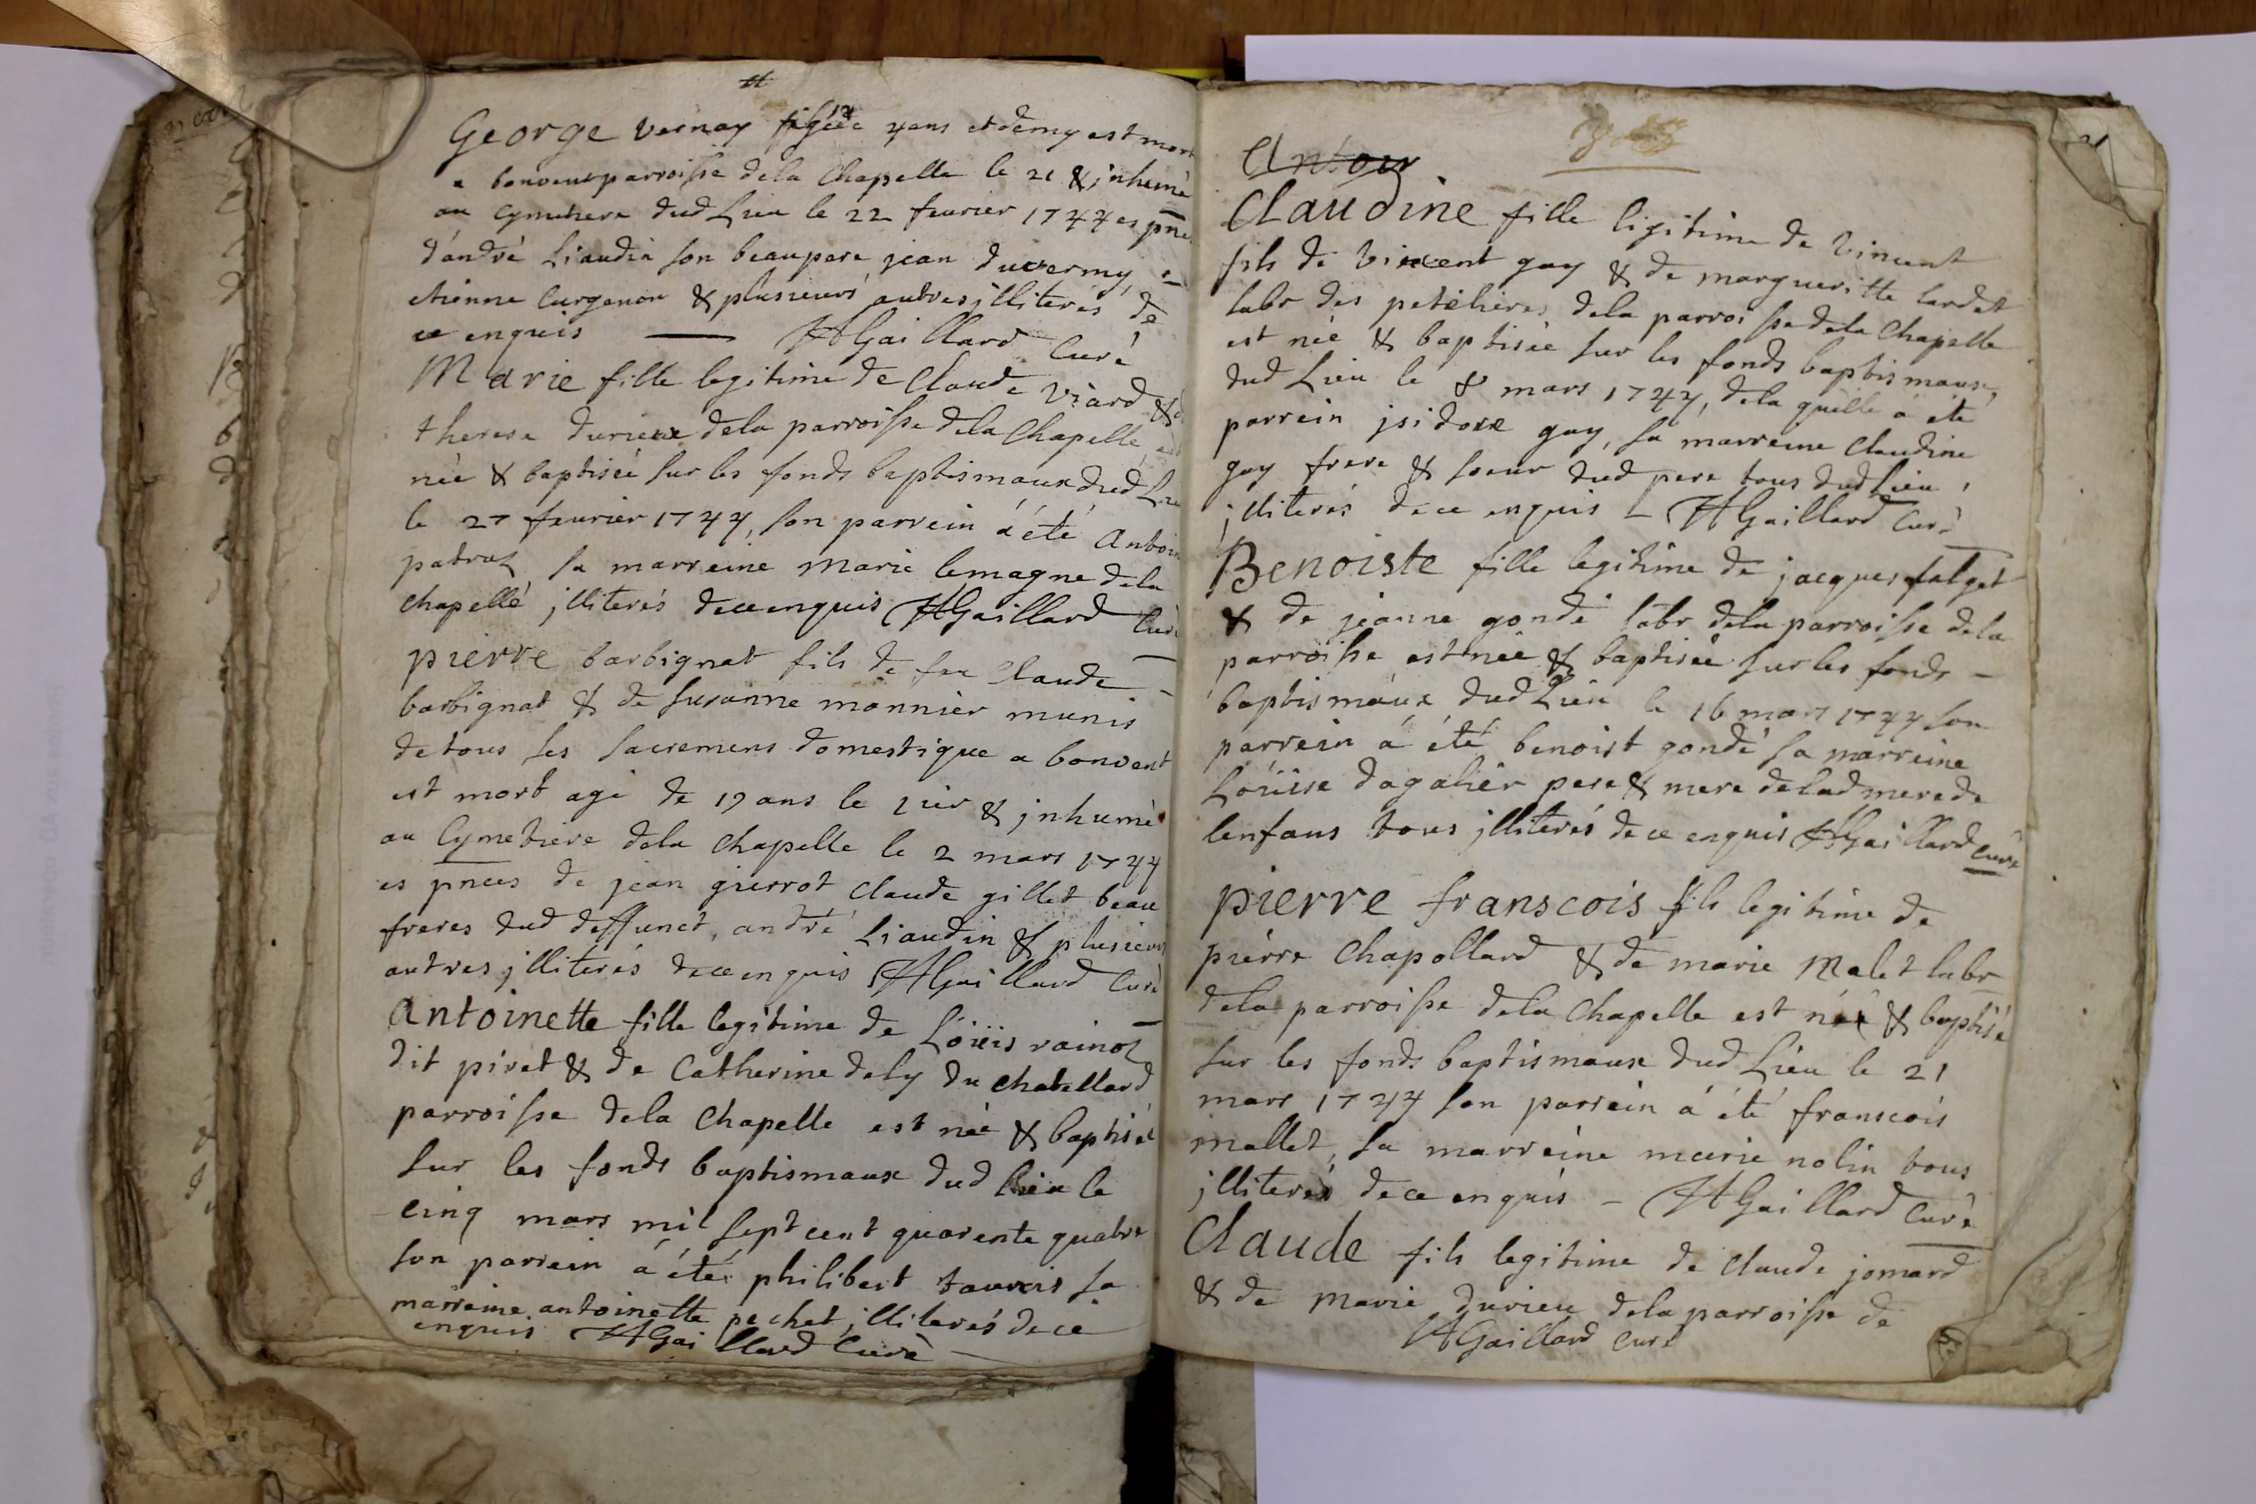 George vernay agée 4 ans et demy est mort
a bonvent parroisse dela Chapelle le 21 & jnhumè
au Cymetiere dud Lieu le 22 feurier 1744 es pñces
d'andré Liaudin son beaupere jean duvermy,
etienne Curgenon & plusieurs autres jlliterés de
ce enquis — HGaillard Curé
Marie fille legitime de Claude Viard &
therese durieux dela parroisse dela Chapelle est
née & baptisée sur les fonds baptismaux dud Lieu
le 27 feurier 1744, son parrein á été Antoine
patral sa marreine Marie lemagne dela
chapelle jlliterés dece enquis HGaillard Curé
pierre barbignat fils de feu Claude
barbignat & de susanne monnier munis
de tous ses sacremens domestique a bonvent
est mort agé de 19 ans le 1ier & jnhumè
au Cymetiere dela chapelle le 2 mars 1744
es pñces de jean guerrot Claude gillet beau
freres dud deffunct, andré Liaudin & plusieurs
autres jlliterés dece enquis HGaillard Curé
Antoinette fille legitime de Loüis rainol
dit piret & de Catherine dely du chatellard
parroisse dela Chapelle est née & baptisée
sur les fonds baptismaux dud lieu le
cinq mars mil sept cent quarente quatre
son parrein á été philibert tauvais sa
marreine antoinette pechet jlliterés de ce
enquis HGaillard Curé
Antoin
Claudine fille ligitime de Vincent
fils de Vincent guy & de margueritte lardet
labr des petelieres dela parroisse dela Chapelle
est née & baptisée sur les fonds baptismaux
dud Lieu le 8 mars 1744, dela quelle á été
parrein jsidore guy, sa marreine Claudine
guy frere & soeur dud pere tous dud Lieu,
jlliterés dece enquis - HGaillard Curé
Benoiste fille legitime de jacques falget
& de jeanne gondé labr dela parroisse dela
parroisse est née & baptisée sur les fonds
baptismaux dud Lieu le 16 mars 1744 son
parrein á été benoist gondé sa marreine
Loüise dagalier pere & mere delad mere de
lenfans tous jlliterés dece enquis HGaillard Curé
pierre franscois fils legitime de
pierre Chapollard & de marie Malet labr
dela parroisse dela Chapelle est né & baptisé
sur les fonds baptismaux dud Lieu le 21
mars 1744 son parrein á été franscois
mallet, sa marreine marie nolin tous
jlliterés dece enquis - HGaillard Curé
Claude fils legitime de Claude jomard
& de Marie durieu dela parroisse de
HGaillard Curé